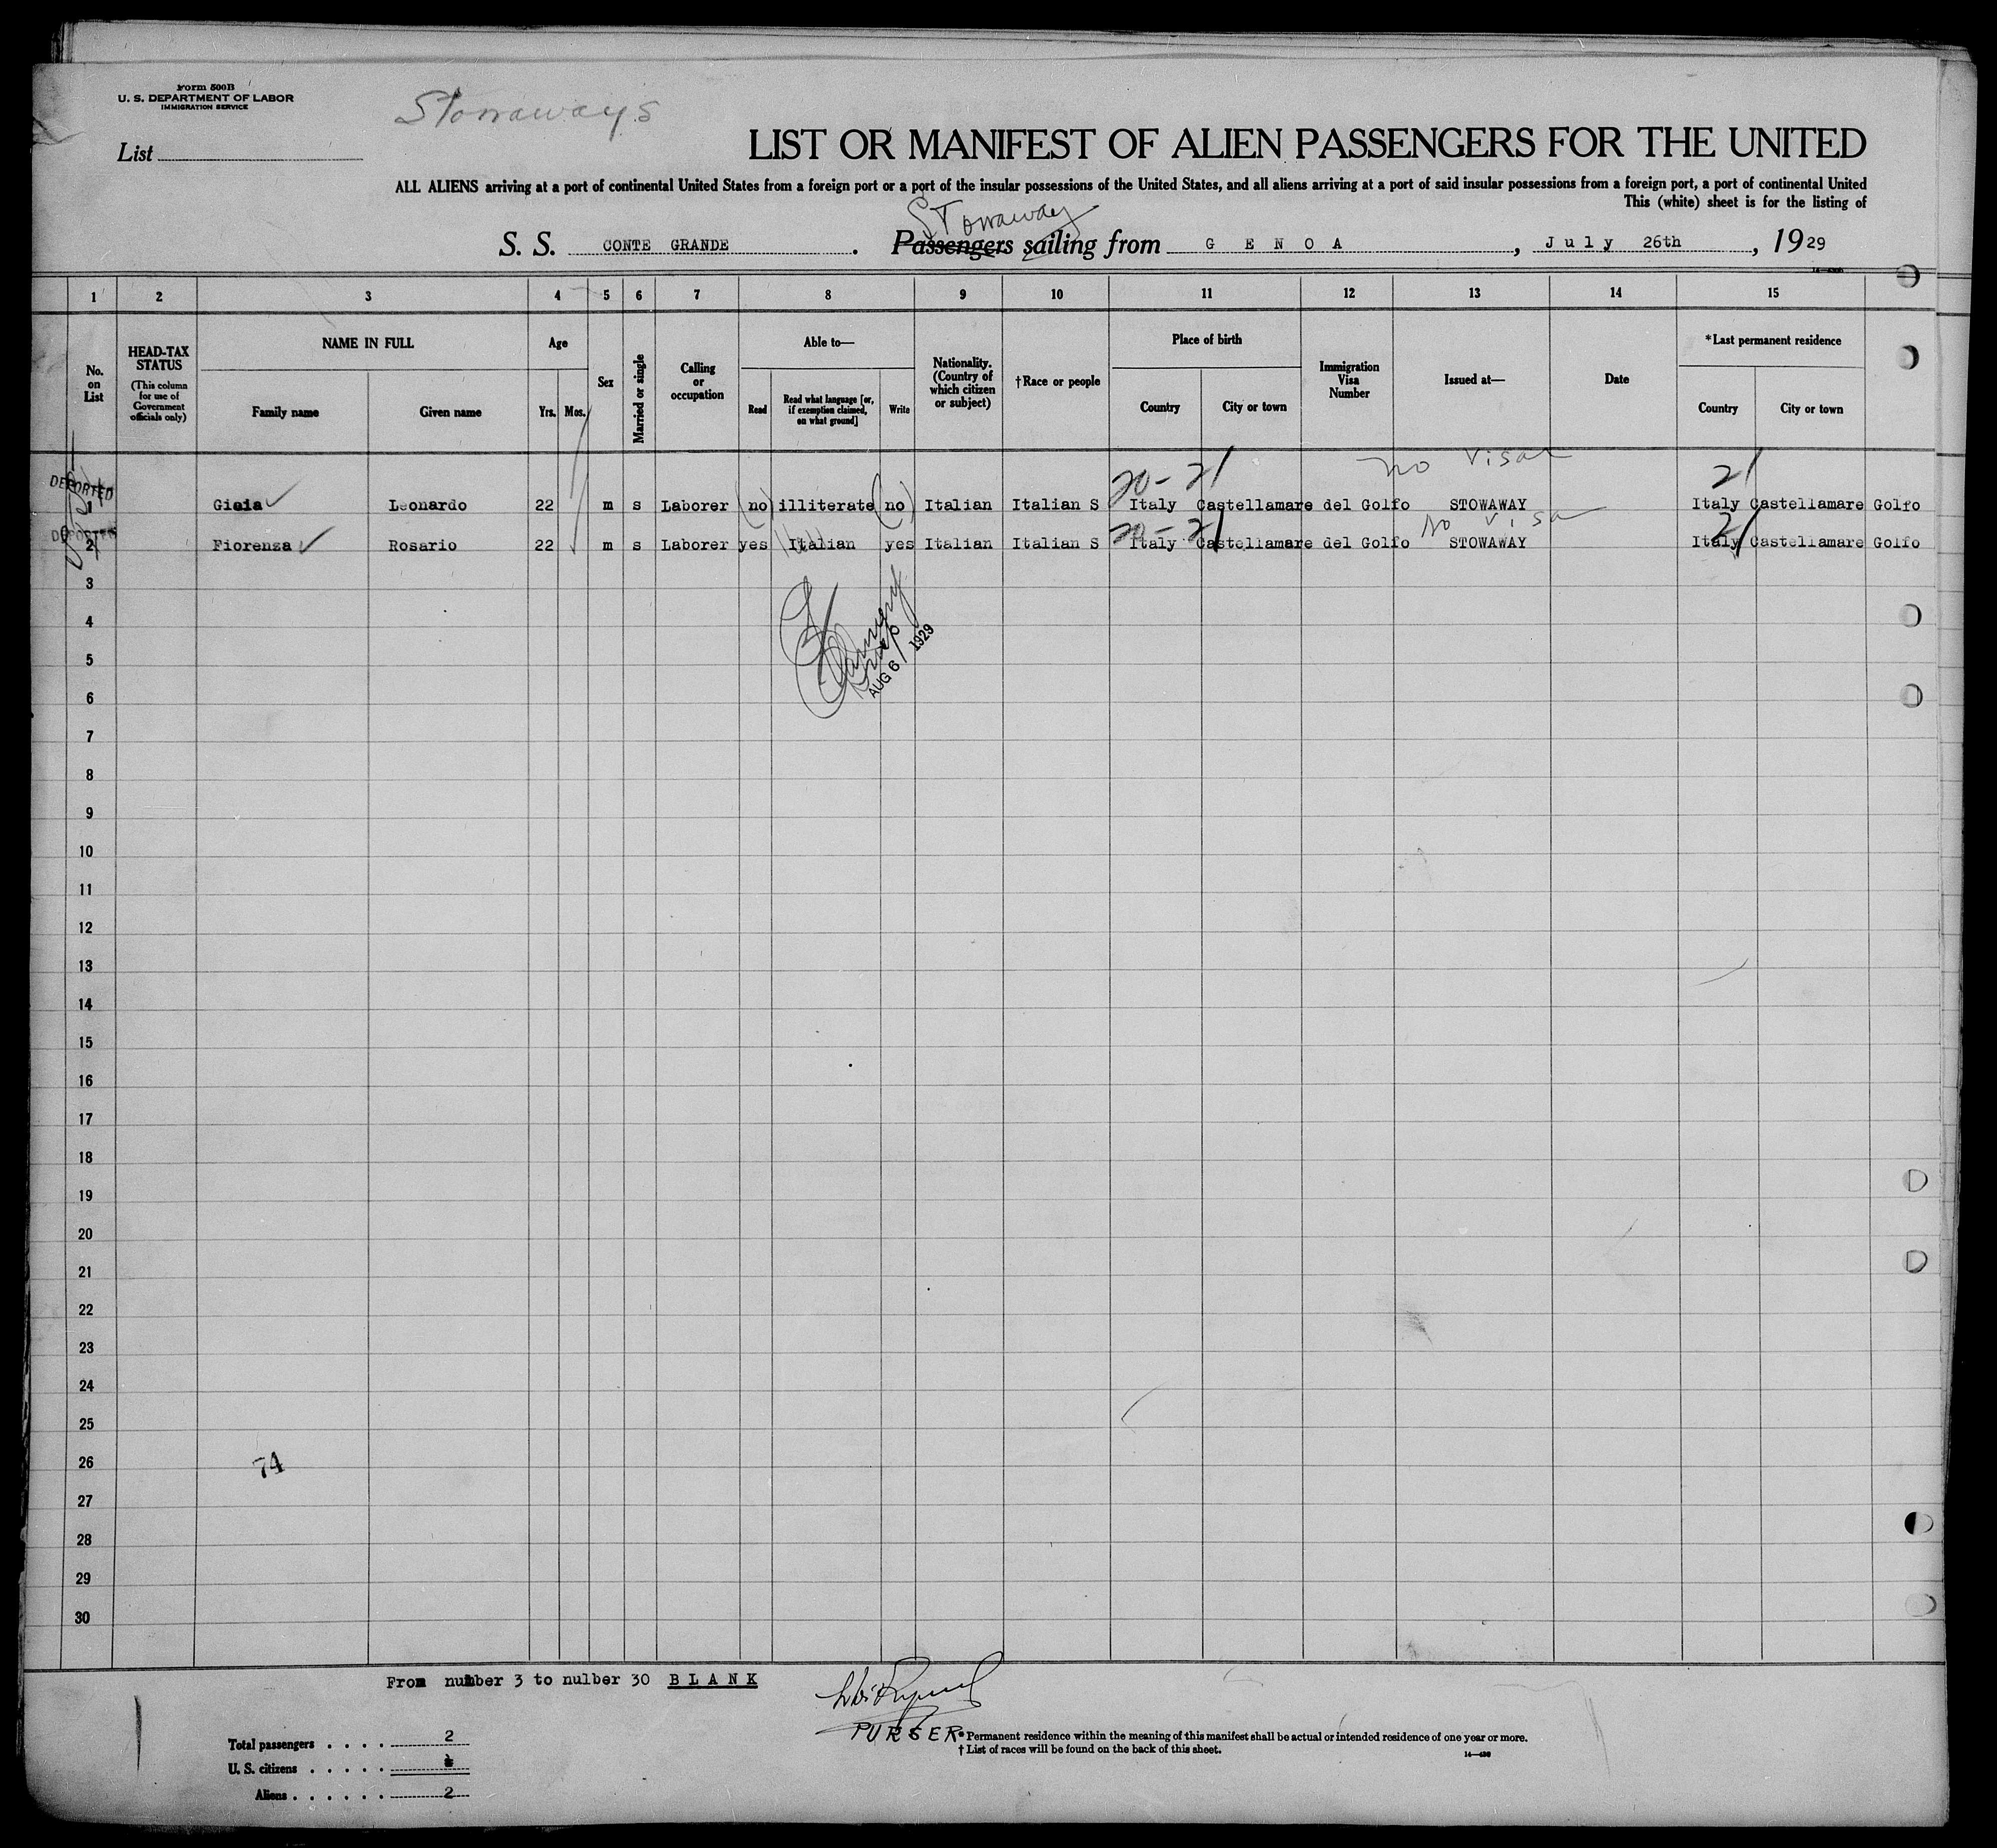 Form 500B
U. S. DEPARTMENT OF LABOR
IMMIGRATION SERVICE
Stowaways
List
LIST OR MANIFEST OF ALIEN PASSENGERS FOR THE UNITED
ALL ALIENS arriving at a port of continental United States from a foreign port or a port of the insular possessions of the United States, and all aliens arriving at a port of said insular possessions from a foreign port, a port of continental United
This (white) sheet is for the listing of
Stowaway
S. S. CONTE GRANDE . Passengers sailing from G E N O A , July 26th , 1929
1 2 3 4 5 6 7 8 9 10 11 12 13 14 15
No. on List
HEAD-TAX STATUS
(This column for use of Government officials only)
NAME IN FULL
Family name
Given name
Age
Yrs.
Mos.
Sex
Married or single
Calling or occupation
Able to—
Read
Read what language [or, if exemption claimed, on what ground]
Write
Nationality. (Country of which citizen or subject)
†Race or people
Place of birth
Country
City or town
Immigration Visa Number
Issued at—
Date
*Last permanent residence
Country
City or town
20-21 no visa 21
DEPORTED
1 Gioia Leonardo 22 m s Laborer (no) illiterate (no) Italian Italian S Italy Castellamare del Golfo STOWAWAY Italy Castellamare Golfo
20-21 No visa 21
DEPORTED
2 Fiorenza Rosario 22 m s Laborer yes Italian yes Italian Italian S Italy Castellamare del Golfo STOWAWAY Italy Castellamare Golfo
3
4
5
AUG 6 1929
6
7
8
9
10
11
12
13
14
15
16
17
18
19
20
21
22
23
24
25
26
74
27
28
29
30
From number 3 to nulber 30 B L A N K
PURSER
*Permanent residence within the meaning of this manifest shall be actual or intended residence of one year or more.
†List of races will be found on the back of this sheet.
Total passengers . . . . 2
U. S. citizens . . . . .
Aliens . . . . . . 2